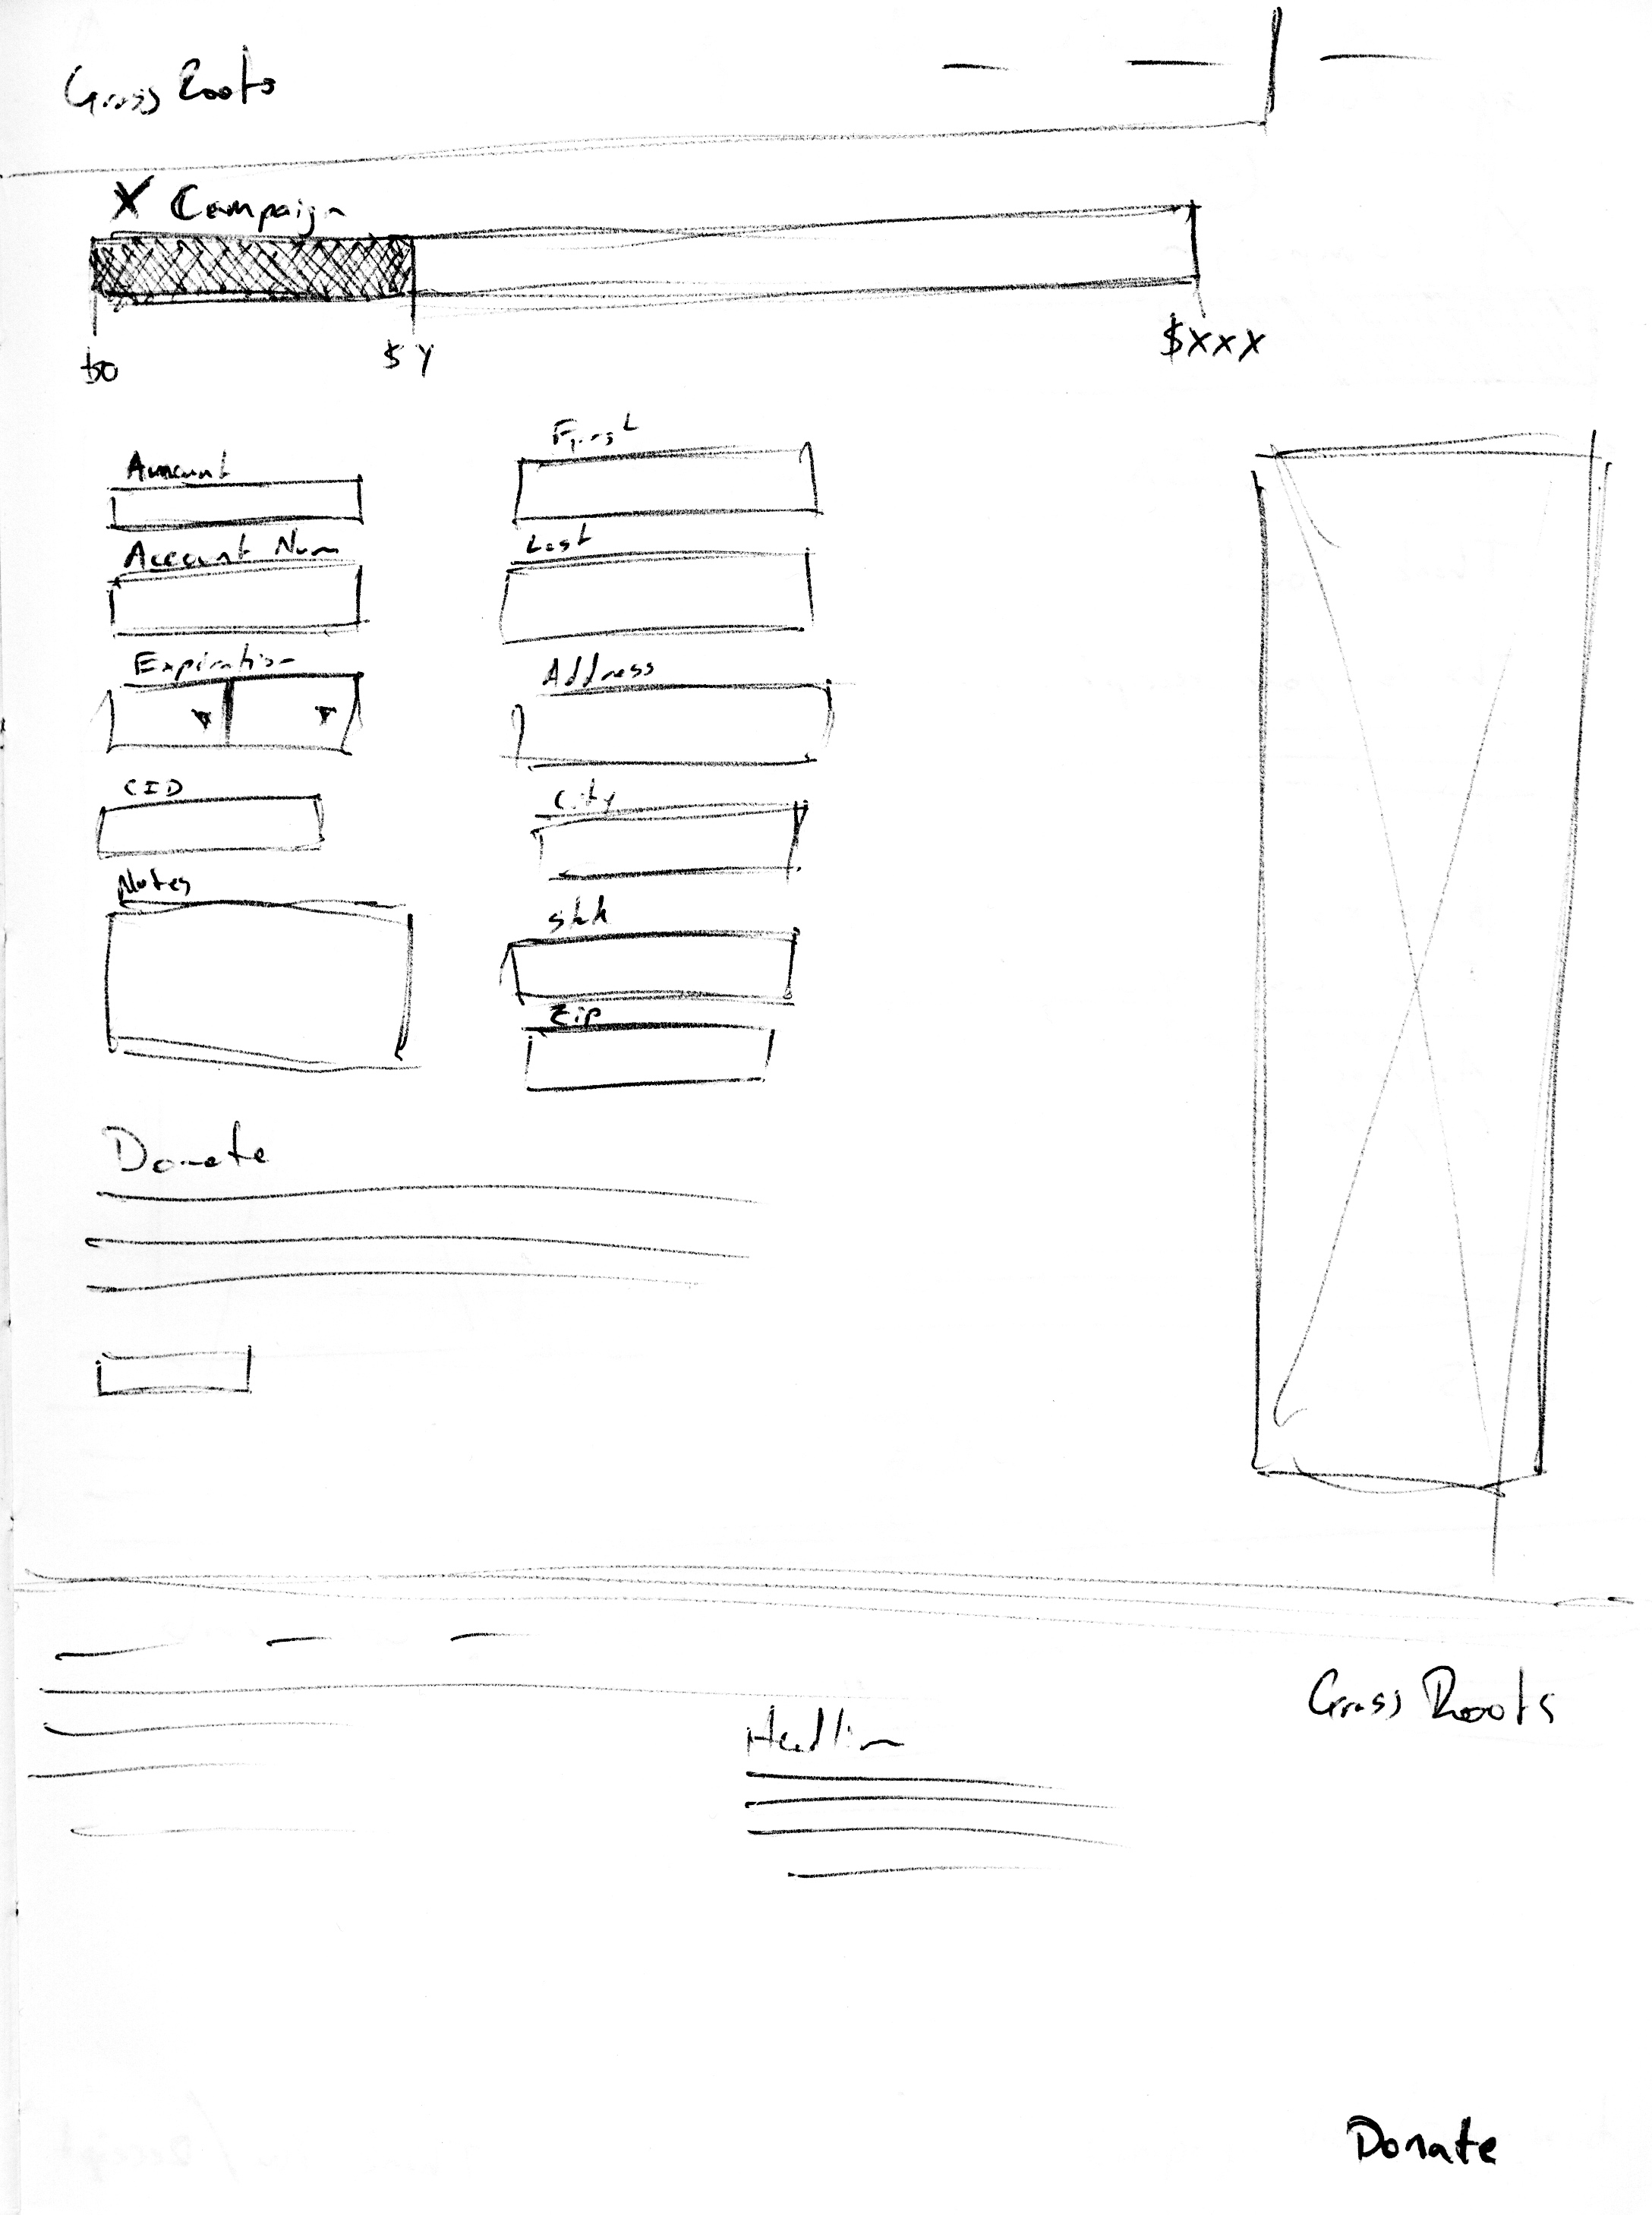 Grass Roots
X Campaign
$0
$Y
$XXX
Amount
Account Num
Expiration
CID
Notes
First
Last
Address
City
State
Zip
Donate
Grass Roots
Headline
Donate